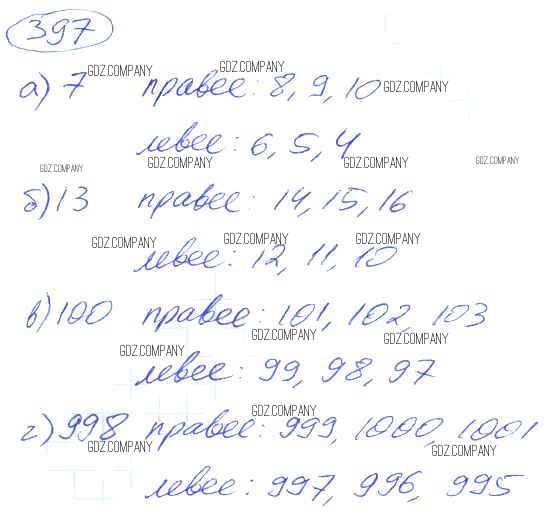 397
GDZ.COMPANY GDZ.COMPANY
а) 7 правее: 8, 9, 10 GDZ.COMPANY
левее: 6, 5, 4
GDZ.COMPANY GDZ.COMPANY GDZ.COMPANY GDZ.COMPANY
б) 13 правее: 14, 15, 16
GDZ.COMPANY GDZ.COMPANY GDZ.COMPANY
левее: 12, 11, 10
в) 100 правее: 101, 102, 103
GDZ.COMPANY GDZ.COMPANY
GDZ.COMPANY
левее: 99, 98, 97
GDZ.COMPANY
г) 998 правее: 999, 1000, 1001
GDZ.COMPANY GDZ.COMPANY
левее: 997, 996, 995